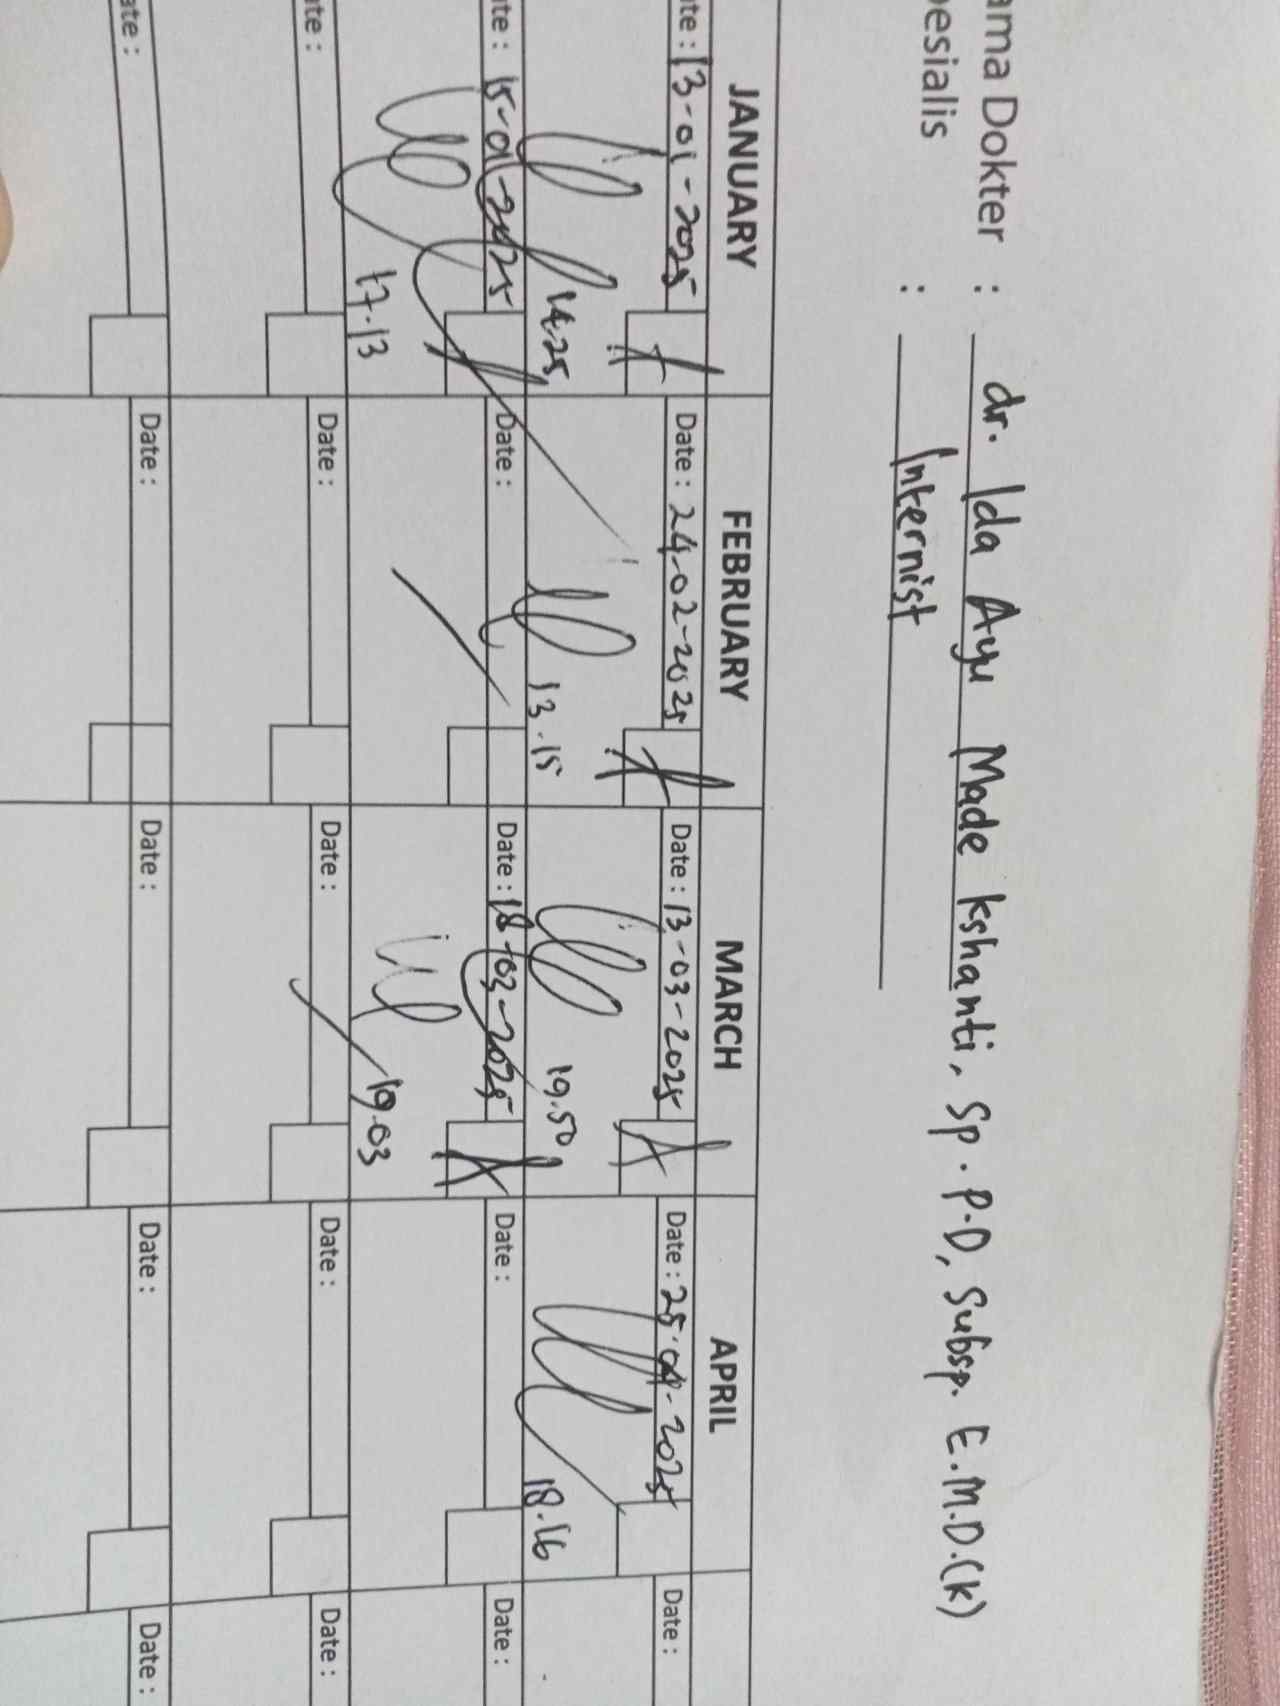 ama Dokter : dr. Ida Ayu Made kshanti, Sp.P.D, Subsp. E.M.D.(K)
esialis : Internist
JANUARY FEBRUARY MARCH APRIL
ate : 13-01-2025 Date : 24-02-2025 Date : 13-03-2025 Date : 25-04-2025 Date :
14.25 13.15 19.50 18.16
ate : 15-01-2025 Date : Date : 18-03-2025 Date : Date :
17.13 19.03
ate : Date : Date : Date : Date :
ate : Date : Date : Date : Date :